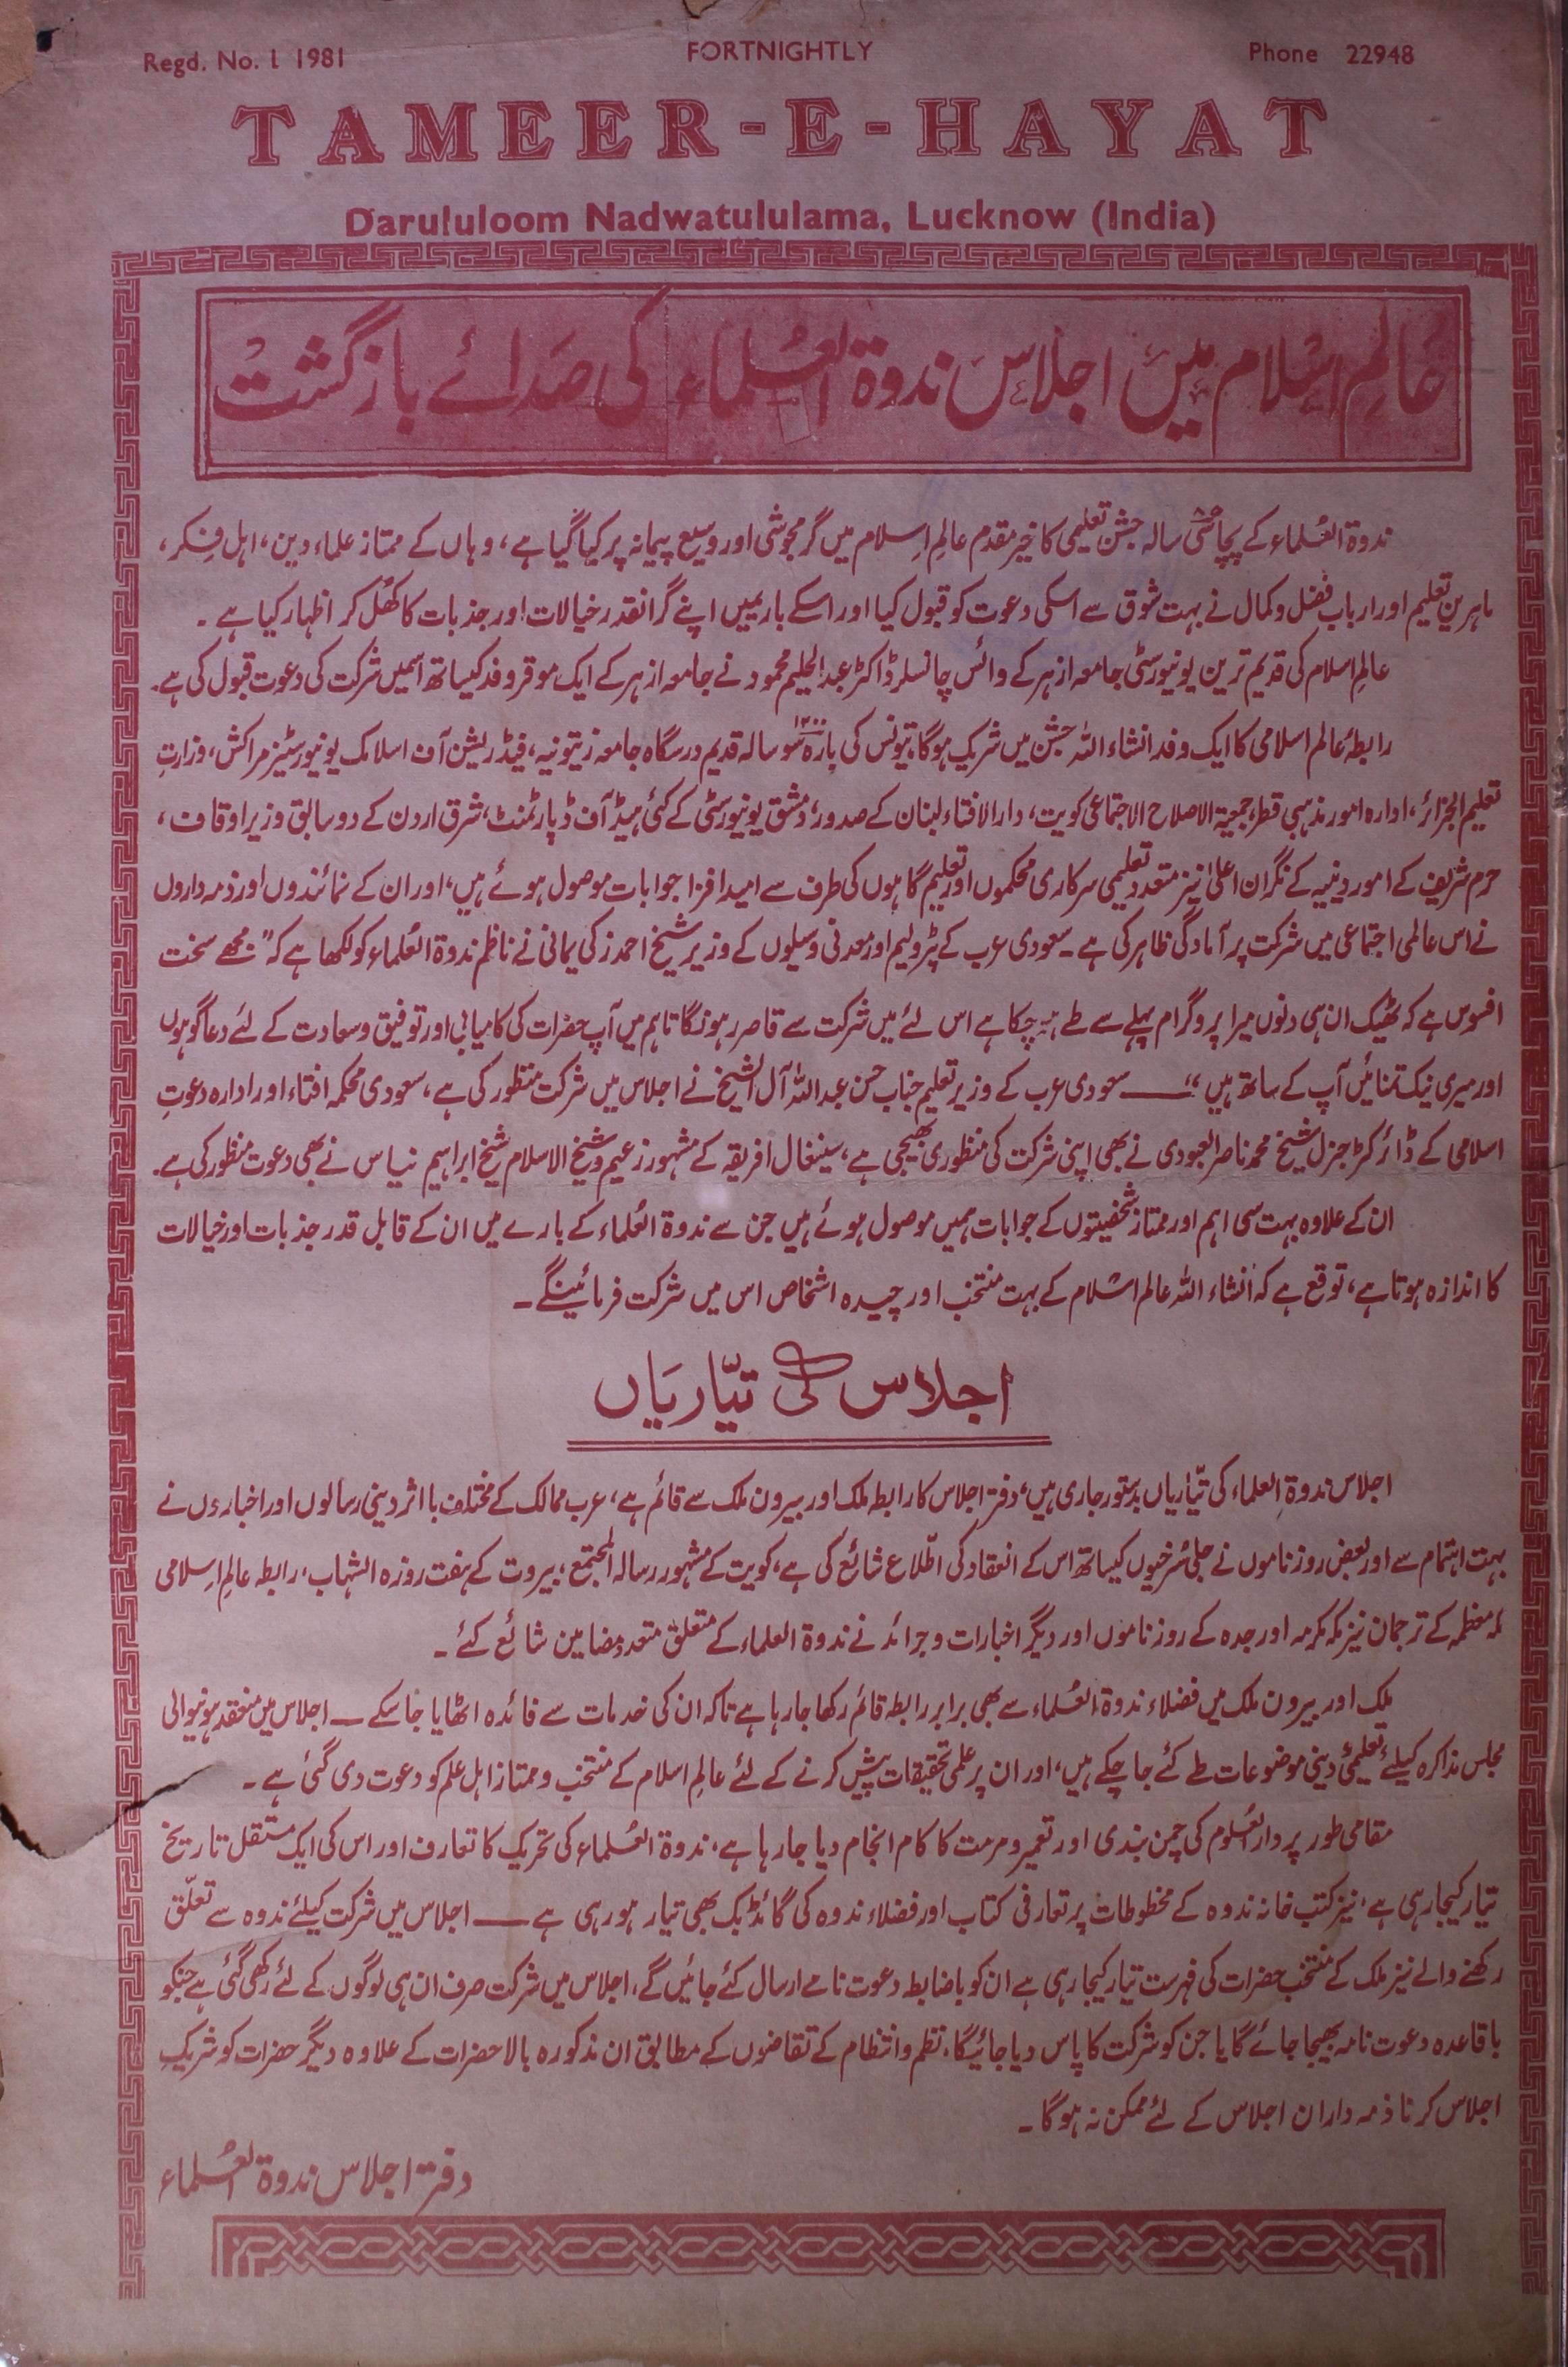 Regd. No. L 1981
FORTNIGHTLY
Phone 22948
TAMEER-E-HAYAT
Darululoom Nadwatululama, Lucknow (India)
عالمِ اسلام میں اجلاس ندوۃ العُلماء کی صدائے بازگشت
ندوۃ العُلماء کے پچاسی سالہ جشن تعلیمی کا خیر مقدم عالمِ اِسلام میں گرمجوشی اور وسیع پیمانہ پر کیا گیا ہے، وہاں کے ممتاز علماء دین، اہل فِکر،
ماہرینِ تعلیم اور ارباب فضل و کمال نے بہت شوق سے اسکی دعوت کو قبول کیا اور اسکے بارمیں اپنے گرانقدر خیالات اور جذبات کا کھُل کر اظہار کیا ہے ۔
عالمِ اسلام کی قدیم ترین یونیورسٹی جامعہ ازہر کے وائس چانسلر ڈاکٹر عبدالحلیم محمود نے جامعہ ازہر کے ایک موقر وفد کیساتھ اسمیں شرکت کی دعوت قبول کی ہے۔
رابطۂ عالم اسلامی کا ایک وفد انشاء اللہ جشن میں شریک ہوگا، تیونس کی بارہ سو سالہ قدیم درسگاہ جامعہ زیتونیہ، فیڈریشن آف اسلامک یونیورسٹیز مراکش، وزارتِ
تعلیم الجزائر، ادارہ امور مذہبی قطر، جمعیۃ الاصلاح الاجتماعی کویت، دار الافتاء لبنان کے صدور، دمشق یونیورسٹی کے کئی ہیڈ آف ڈپارٹمنٹ، شرق اردن کے دو سابق وزیر اوقاف،
حرم شریف کے امور دینیہ کے نگران اعلیٰ نیز متعدد تعلیمی سرکاری محکموں اور تعلیم گاہوں کی طرف سے امید افزا جوابات موصول ہوئے ہیں، اور ان کے نمائندوں اور ذمہ داروں
نے اس عالمی اجتماعی میں شرکت پر آمادگی ظاہر کی ہے ۔ سعودی عرب کے پٹرولیم اور معدنی وسیلوں کے وزیر شیخ احمد زکی یمانی نے ناظم ندوۃ العُلماء کو لکھا ہے کہ ”مجھے سخت
افسوس ہے کہ ٹھیک ان ہی دنوں میرا پروگرام پہلے سے طے ہو چکا ہے اس لئے میں شرکت سے قاصر رہونگا تاہم میں آپ حضرات کی کامیابی اور توفیق و سعادت کے لئے دعا گو ہوں
اور میری نیک تمنائیں آپ کے ساتھ ہیں“ —— سعودی عرب کے وزیر تعلیم جناب حسن عبداللہ آل الشیخ نے اجلاس میں شرکت منظور کی ہے، سعودی محکمہ افتاء اور ادارہ دعوتِ
اسلامی کے ڈائرکٹر جنرل شیخ محمد ناصر العبودی نے بھی اپنی شرکت کی منظوری بھیجی ہے، سینغال افریقہ کے مشہور زعیم و شیخ الاسلام شیخ ابراہیم نیاس نے بھی دعوت منظور کی ہے۔
ان کے علاوہ بہت سی اہم اور ممتاز شخصیتوں کے جوابات ہمیں موصول ہوئے ہیں جن سے ندوۃ العُلماء کے بارے میں ان کے قابل قدر جذبات اور خیالات
کا اندازہ ہوتا ہے، توقع ہے کہ انشاء اللہ عالم اسلام کے بہت منتخب اور چیدہ اشخاص اس میں شرکت فرمائینگے ۔
اجلاس کی تیّاریاں
اجلاس ندوۃِ العلماء کی تیّاریاں بدستور جاری ہیں، دفتر اجلاس کا رابطہ ملک اور بیرون ملک سے قائم ہے، عرب ممالک کے مختلف با اثر دینی رسالوں اور اخباروں نے
بہت اہتمام سے اور بعض روزناموں نے جلی سُرخیوں کیساتھ اس کے انعقاد کی اطّلاع شائع کی ہے، کویت کے مشہور رسالہ المجتمع، بیروت کے ہفت روزہ الشہاب، رابطہ عالمِ اِسلامی
مکہ معظمہ کے ترجمان نیز مکہ مکرمہ اور جدہ کے روزناموں اور دیگر اخبارات و جرائد نے ندوۃ العلماء کے متعلق متعدد مضامین شائع کئے ۔
ملک اور بیرون ملک میں فضلاء ندوۃ العُلماء سے بھی برابر رابطہ قائم رکھا جارہا ہے تاکہ ان کی خدمات سے فائدہ اٹھایا جا سکے — اجلاس میں منعقد ہونیوالی
مجلس مذاکرہ کیلئے تعلیمی، دینی موضوعات طے کئے جا چکے ہیں، اور ان پر علمی تحقیقات پیش کرنے کے لئے عالمِ اسلام کے منتخب و ممتاز اہل علم کو دعوت دی گئی ہے ۔
مقامی طور پر دار العُلوم کی چمن بندی اور تعمیر و مرمت کا کام انجام دیا جارہا ہے، ندوۃ العُلماء کی تحریک کا تعارف اور اس کی ایک مستقل تاریخ
تیار کیجا رہی ہے، نیز کتب خانہ ندوہ کے مخطوطات پر تعارفی کتاب اور فضلاء ندوہ کی گائڈ بک بھی تیار ہو رہی ہے —— اجلاس میں شرکت کیلئے ندوہ سے تعلّق
رکھنے والے نیز ملک کے منتخب حضرات کی فہرست تیار کیجا رہی ہے ان کو باضابطہ دعوت نامے ارسال کئے جائیں گے، اجلاس میں شرکت صرف ان ہی لوگوں کے لئے رکھی گئی ہے جنکو
باقاعدہ دعوت نامہ بھیجا جائے گا یا جن کو شرکت کا پاس دیا جائیگا، نظم و انتظام کے تقاضوں کے مطابق ان مذکورہ بالا حضرات کے علاوہ دیگر حضرات کو شریکِ
اجلاس کرنا ذمہ داران اجلاس کے لئے ممکن نہ ہوگا ۔
دفتر اجلاس ندوۃ العُلماء